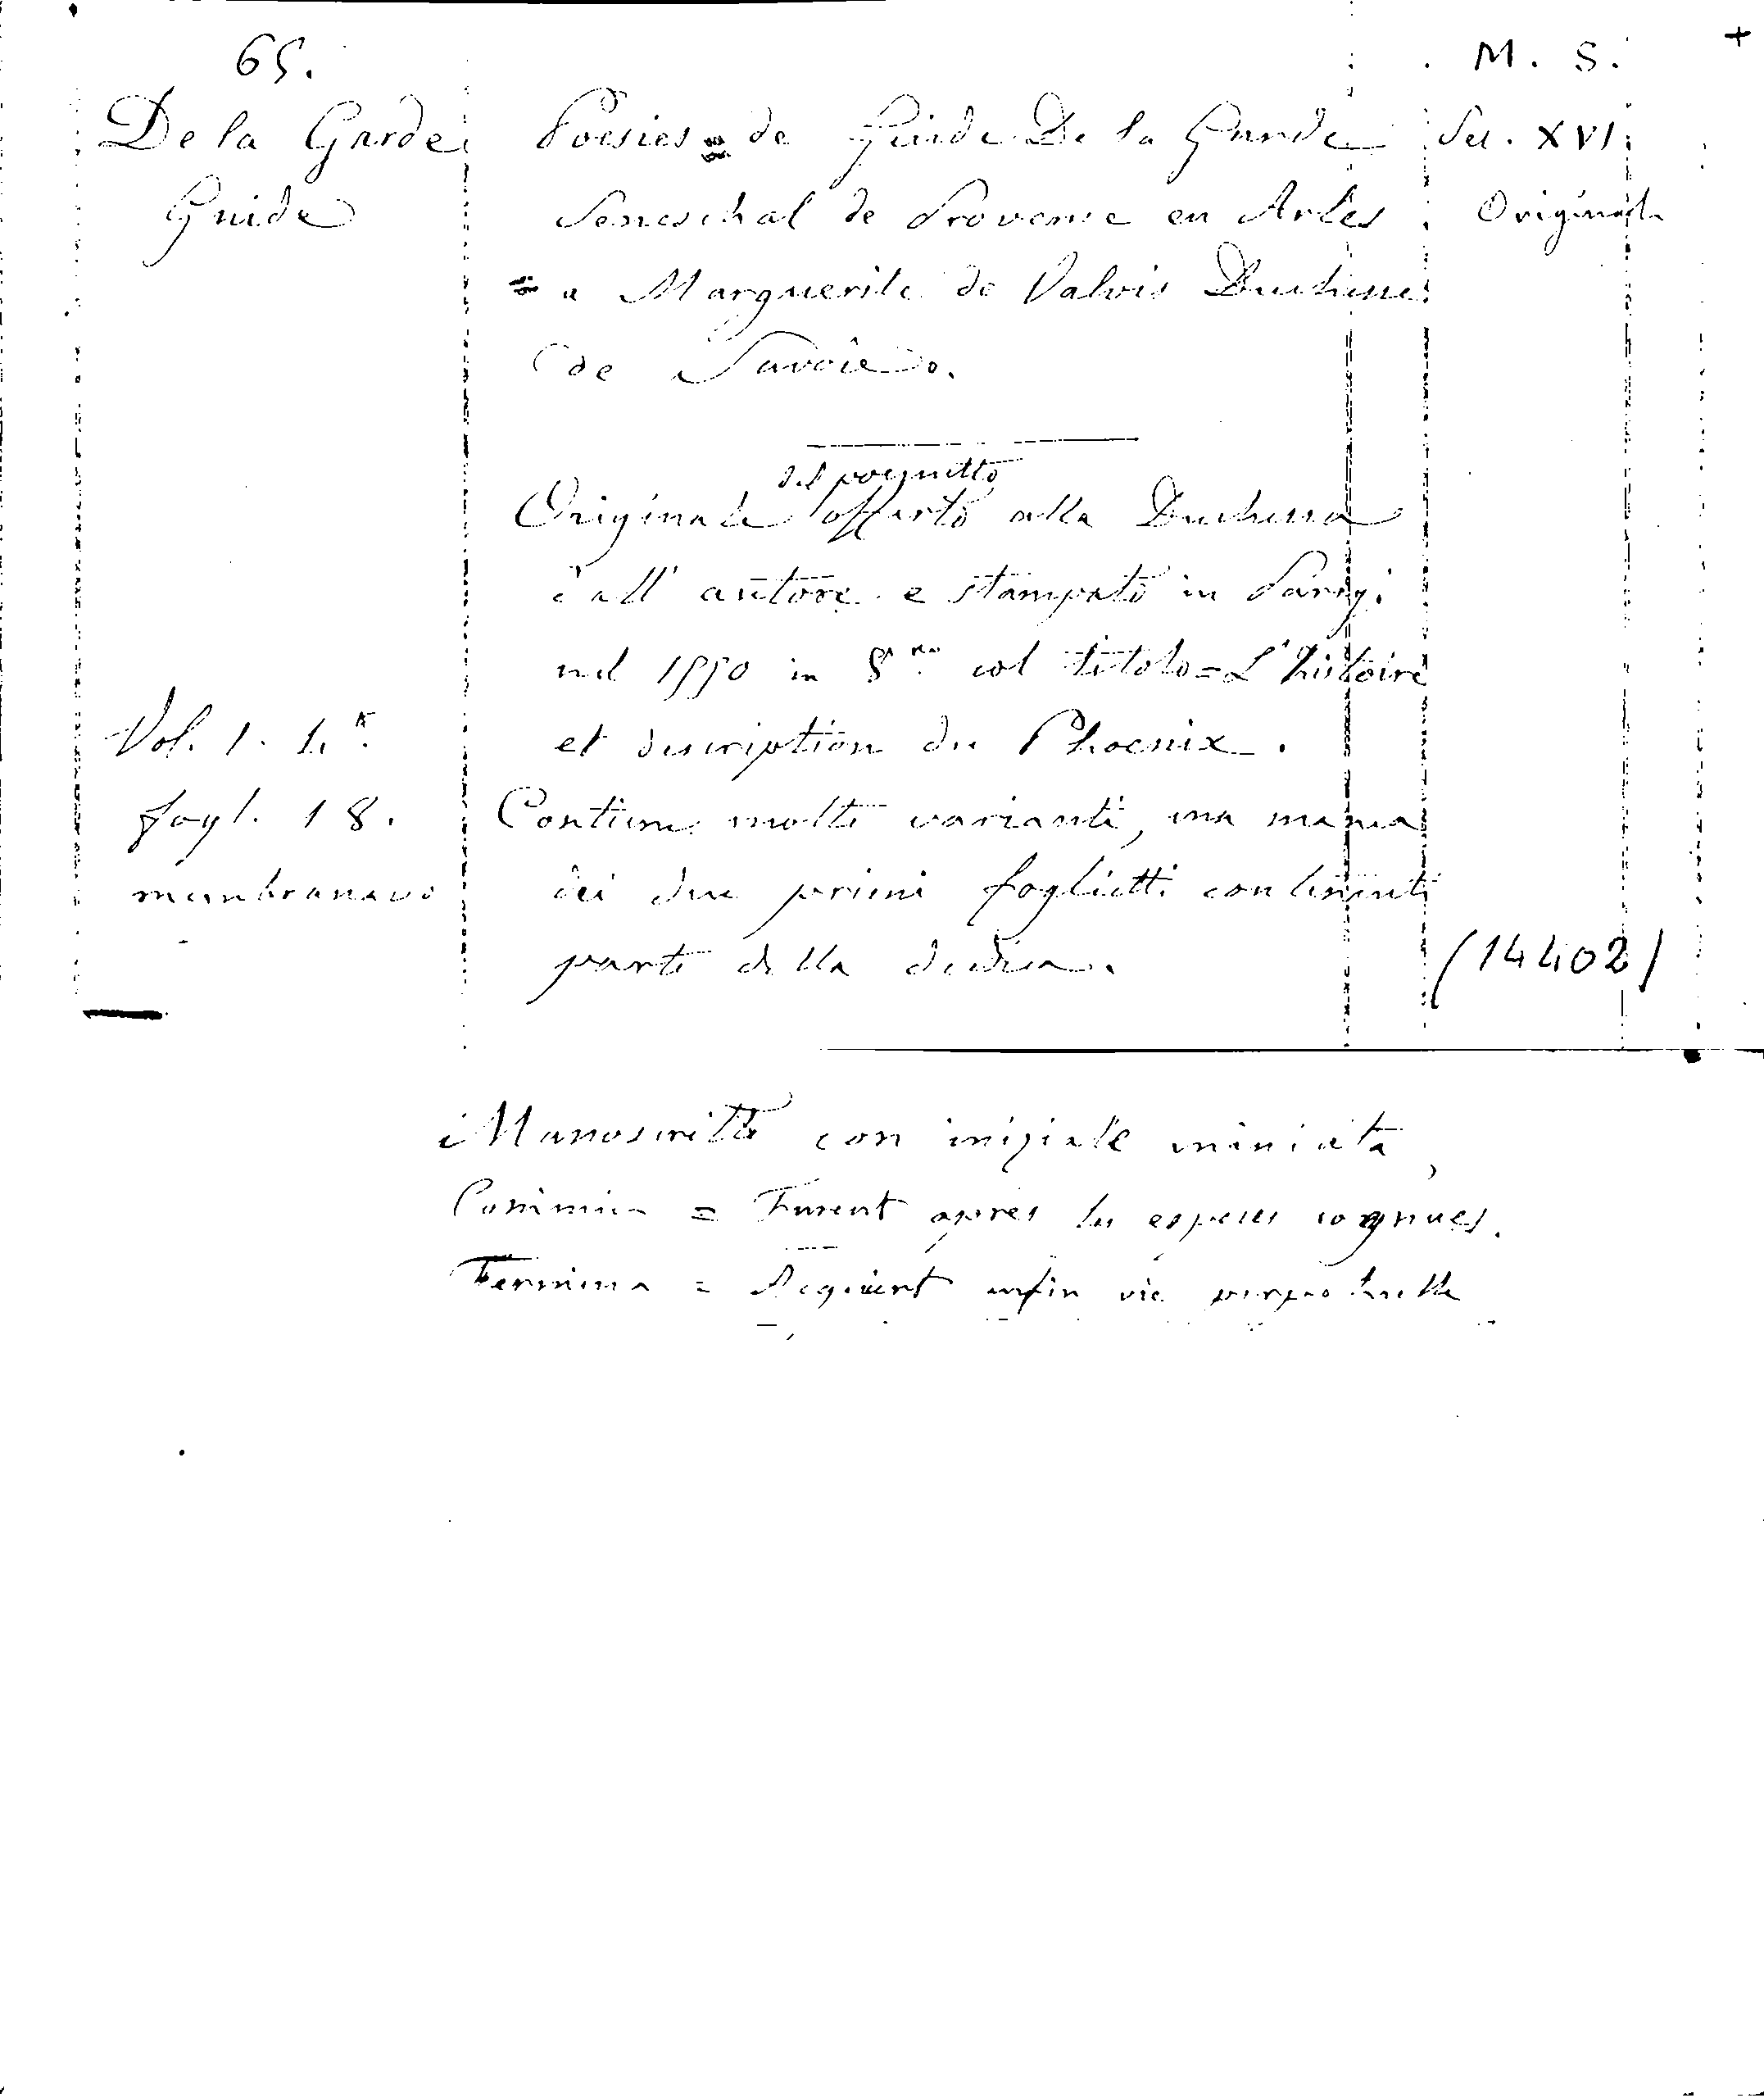 65.
M. S.
De la Garde
Guide
Poesies de Guide De la Garde
Seneschal de Provence en Arles
= a Marguerite de Valois Duchesse
de Savoie.
Sec. XVI.
Originale
del poemetto
Originale offerto alla Duchessa
dall' autore e stampato in Parigi
nel 1550 in 8.vo col titolo = L'histoire
et description du Phoenix.
Contiene molte varianti, ma manca
dei due primi foglietti contenenti
parte della dedica.
Vol. 1. 4.°
fogl. 18.
membranaceo
(14402)
Manoscritto con iniziale miniata,
Comincia = Furent apres les especes cognues.
Termina = Acquiert enfin vie perpetuelle